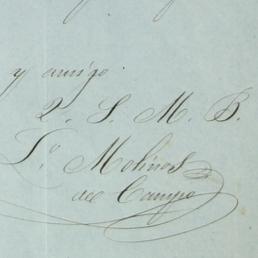 y amigo
Q. S. M. B.
Fo. Molinos
del Campo